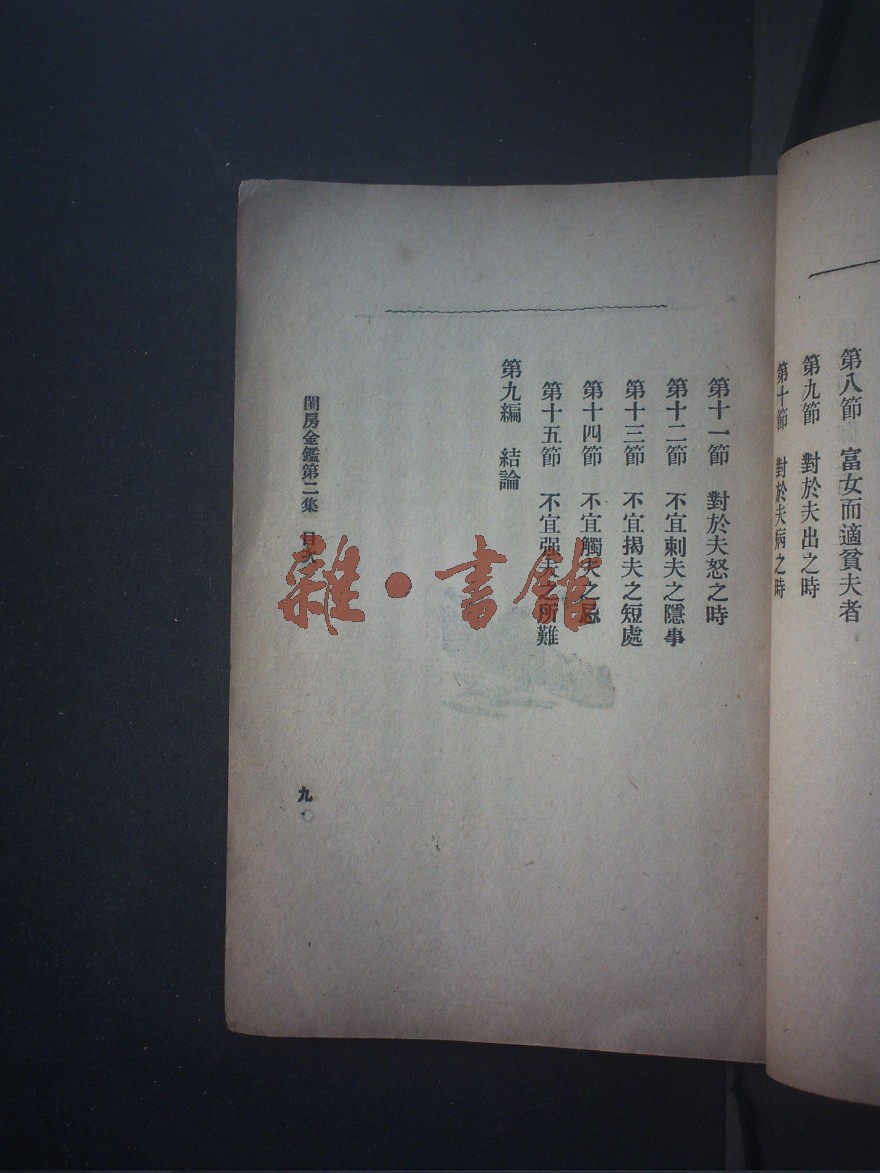 第八節　富女而適貧夫者
第九節　對於夫出之時
第十節　對於夫病之時
第十一節　對於夫怒之時
第十二節　不宜刺夫之隱事
第十三節　不宜揭夫之短處
第十四節　不宜觸夫之忌
第十五節　不宜强夫之所難
第九編　結論
閨房金鑑第二集　目次
九
雜·書館